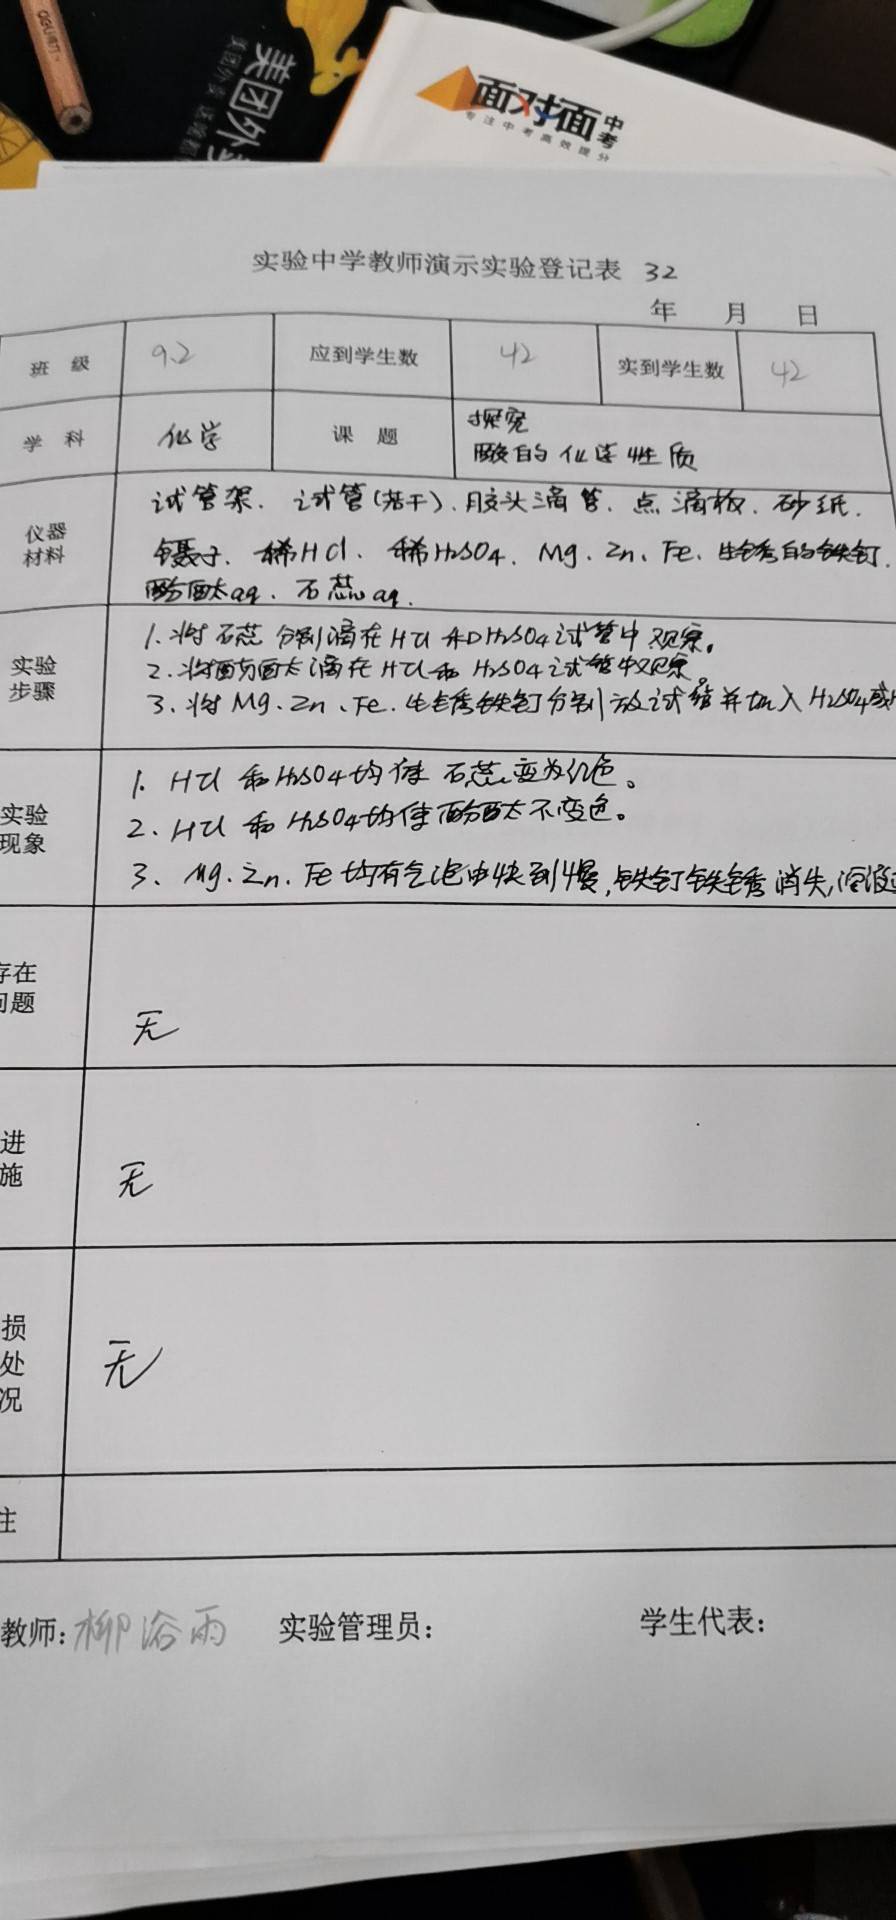 美团外
美团外卖 送啥都
面对面 中考
专注中考高效提分
实验中学教师演示实验登记表 32
年 月 日
班 级 9.2 应到学生数 42 实到学生数 42
学 科 化学 课 题 探究
酸的化学性质
仪器
材料
试管架、试管(若干)、胶头滴管、点滴板、砂纸、
镊子、稀HCl、稀H₂SO₄、Mg、Zn、Fe、生锈的铁钉、
酚酞aq、石蕊aq.
实验
步骤
1.将石蕊分别滴在HCl和H₂SO₄试管中观察。
2.将酚酞滴在HCl和H₂SO₄试管中观察。
3.将Mg、Zn、Fe、生锈铁钉分别放试管并加入H₂SO₄或
实验
现象
1. HCl和H₂SO₄均使石蕊变为红色。
2、HCl和H₂SO₄均使酚酞不变色。
3、Mg、Zn、Fe均有气泡由快到慢,铁钉铁锈消失,溶液
存在
问题
无
进
施
无
损
处
况
无
注
教师: 柳浴雨 实验管理员: 学生代表: